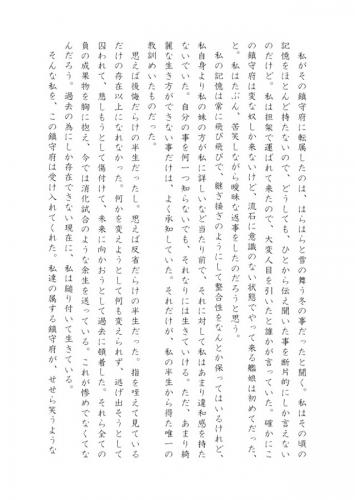 私がその鎮守府に転属したのは、はらはらと雪の舞う冬の事だったと聞く。私は頃の
記憶をほとんど持たないので、どうしても、ひとから伝え聞いた事を断片的にしか言えない
のだけど。私は担架で運ばれて来たので、大変人目を引いたと誰かが言っていた。確かにこ
の鎮守府は変な奴しか来ないけど、流石に意識のない状態でやって来る艦娘は初めてだった、
と。私はたぶん、苦笑しながら曖昧な返事をしたのだろうと思う。
私の記憶は常に飛び飛びで、継ぎ接ぎのようにして整合性をなんとか保ってはいるけれど、
私自身より私の妹の方が私に詳しいなど当たり前で、それに対して私はあまり違和感を持た
ないでいた。自分の事を何一つ知らないでも、それなりには生きていける。ただ、あまり綺
麗な生き方ができない事だけは、よく承知していた。それだけが、私の半生から得た唯一の
教訓めいたものだった。
思えば後悔だらけの半生だったし、思えば反省だらけの半生だった。指を咥えて見ている
だけの存在以上になれなかった。何かを変えようとして何も変えられず、逃げ出そうとして
囚われて、慈しもうとして傷付けて、未来に向かおうとして過去に頓着した。それら全ての
負の成果物を胸に抱え、今では消化試合のような余生を送っている。これが惨めでなくてな
んだろう。過去の為にしか存在できない現在に、私は縋り付いて生きている。
そんな私を、この鎮守府は受け入れてくれた。私達の属する鎮守府が、せせら笑うような